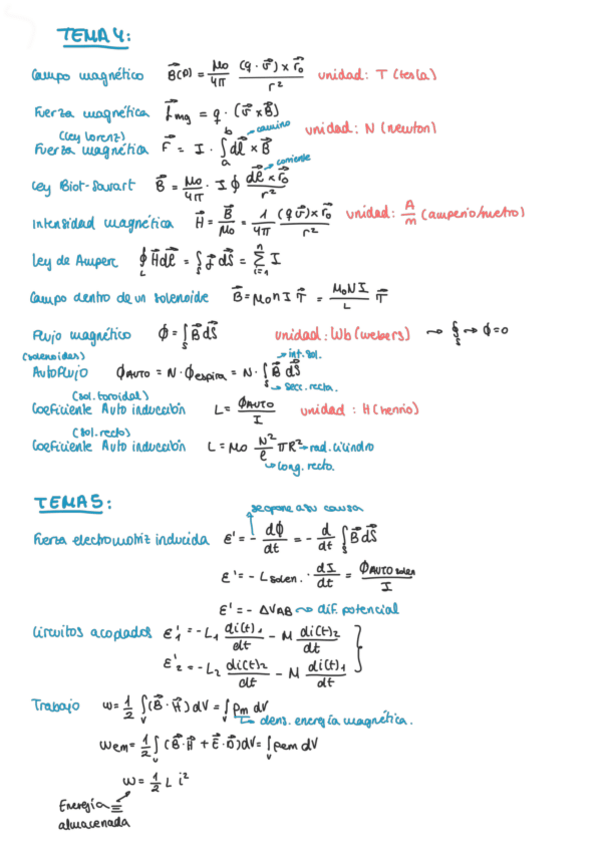 TEMA 4:
Campo magnético B⃗(P) = μ₀/4π (q · v⃗) × r⃗₀ / r² unidad: T (tesla)
Fuerza magnética f⃗mg = q · (v⃗ × B⃗)
(Ley Lorenz) camino unidad: N (newton)
Fuerza magnética F⃗ = I · ∫ₐᵇ dl⃗ × B⃗
corriente
Ley Biot-Savart B⃗ = μ₀/4π · I ∮ dl⃗ × r⃗₀ / r²
Intensidad magnética H⃗ = B⃗/μ₀ = 1/4π (q v⃗) × r⃗₀ / r² unidad: A/m (amperio/metro)
Ley de Amperc ∮_L H⃗ dl⃗ = ∫_S j⃗ dS⃗ = Σⁿᵢ₌₁ I
Campo dentro de un solenoide B⃗ = μ₀ n I T⃗ = μ₀ N I / L T⃗
Flujo magnético Φ = ∫_S B⃗ dS⃗ unidad: Wb (webers) → ∮_S → Φ = 0
(solenoides) int. sol.
Autoflujo Φ_AUTO = N · Φ_espira = N · ∫_S B⃗ dS⃗
secc. recta.
(sol. toroidal)
Coeficiente Auto inducción L = Φ_AUTO / I unidad: H (henrio)
(sol. recto)
Coeficiente Auto inducción L = μ₀ N²/l πR² → rad. cilindro
long. recto.
TEMA 5:
se opone a su causa
Fuerza electromotriz inducida ε' = - dΦ/dt = - d/dt ∫_S B⃗ dS⃗
ε' = - L solen. · dI/dt = Φ_AUTO solen / I
ε' = - ΔV_AB → dif. potencial
Circuitos acoplados ε'₁ = - L₁ di(t)₁/dt - M di(t)₂/dt
ε'₂ = - L₂ di(t)₂/dt - M di(t)₁/dt
Trabajo w = 1/2 ∫_V (B⃗ · H⃗) dV = ∫_V ρm dV
dens. energía magnética.
Wem = 1/2 ∫_V (B⃗ · H⃗ + E⃗ · D⃗) dV = ∫_V ρem dV
w = 1/2 L i²
Energía
almacenada